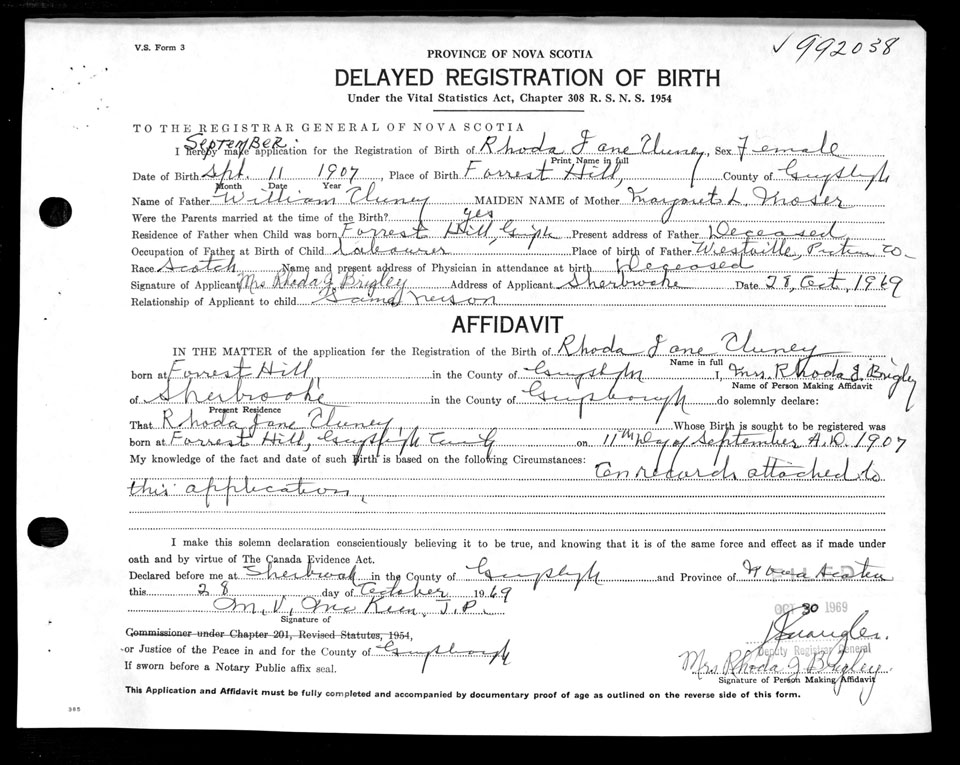 V.S. Form 3
992038
PROVINCE OF NOVA SCOTIA
DELAYED REGISTRATION OF BIRTH
Under the Vital Statistics Act, Chapter 308 R. S. N. S. 1954
TO THE REGISTRAR GENERAL OF NOVA SCOTIA
SEPTEMBER.
I hereby make application for the Registration of Birth of Rhoda Jane Cluney, Sex Female
Print Name in full
Date of Birth Spt. 11 1907, Place of Birth Forrest Hill, County of Guysbgh
Month Date Year
Name of Father William Cluney MAIDEN NAME of Mother Margaret L. Moser
Were the Parents married at the time of the Birth? yes
Residence of Father when Child was born Forrest Hill, Guysh Present address of Father Deceased
Occupation of Father at Birth of Child Labourer Place of birth of Father Westville, Pictou Co.
Race Scotch Name and present address of Physician in attendance at birth Deceased
Signature of Applicant Mrs Rhoda J Brigley Address of Applicant Sherbrooke Date 28, Oct, 1969
Relationship of Applicant to child Same Person
AFFIDAVIT
IN THE MATTER of the application for the Registration of the Birth of Rhoda Jane Cluney
Name in full
born at Forrest Hill, in the County of Guysbgh I, Mrs. Rhoda J. Brigley
Name of Person Making Affidavit
of Sherbrooke in the County of Guysborough do solemnly declare:
Present Residence
That Rhoda Jane Cluney, Whose Birth is sought to be registered was
born at Forrest Hill, Guysbgh County on 11th Day of September A.D. 1907
My knowledge of the fact and date of such Birth is based on the following Circumstances:
on record attached to
this application.
I make this solemn declaration conscientiously believing it to be true, and knowing that it is of the same force and effect as if made under
oath and by virtue of The Canada Evidence Act.
Declared before me at Sherbrook in the County of Guysbgh and Province of Nova Scotia
this 28 day of October 1969
M. V. McKeen J.P.
Signature of
OCT 30 1969
Commissioner under Chapter 201, Revised Statutes, 1954,
or Justice of the Peace in and for the County of Guysborough
Deputy Registrar General
If sworn before a Notary Public affix seal.
Mrs Rhoda J Brigley.
Signature of Person Making Affidavit
This Application and Affidavit must be fully completed and accompanied by documentary proof of age as outlined on the reverse side of this form.